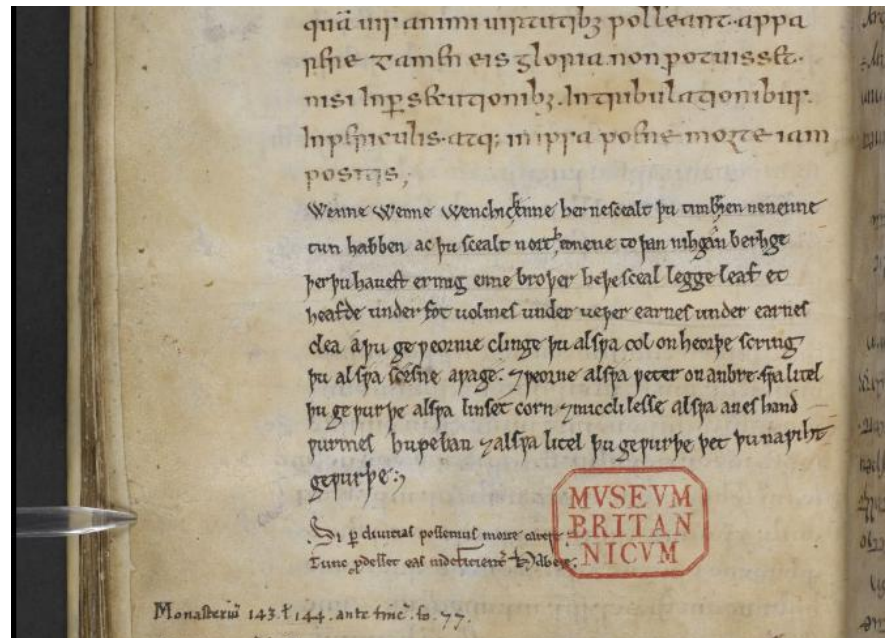 quā uir animi uirtutibꝫ polleant. appa
⁊ eis gloria non potuisset.
nisi In ꝑsecutionibꝫ. In tribulationibus.
In atq; in ipsa morte iam
positis;
Wenne Wenne Wenchichenne her ne scealt þu timbrien ne nenne
tun habben ac þu scealt north eonene to þan nihgan berhge
þer þu hauest ermig enne broþer he þe sceal legge leaf et
heafde under fot uolmes under ueþer earnes under earnes
clea a þu geƿeornie clinge þu alsƿa col on heorþe scring
þu alsƿa scesne aƿage. ⁊ ƿeorne alsƿa ƿeter on anbre. sƿa litel
þu geƿurþe alsƿa linset corn ⁊ muccli lesse alsƿa anes hand
ƿurmes hupeban ⁊ alsƿa litel þu geƿurþe þet þu naƿiht
geƿurþe:
Si ꝑ diuicias possemus morte
Tunc ꝓdesset eas
MVSEVM
BRITAN
NICVM
Monasteriū 143. ł 144. ante finē. fo. 77.